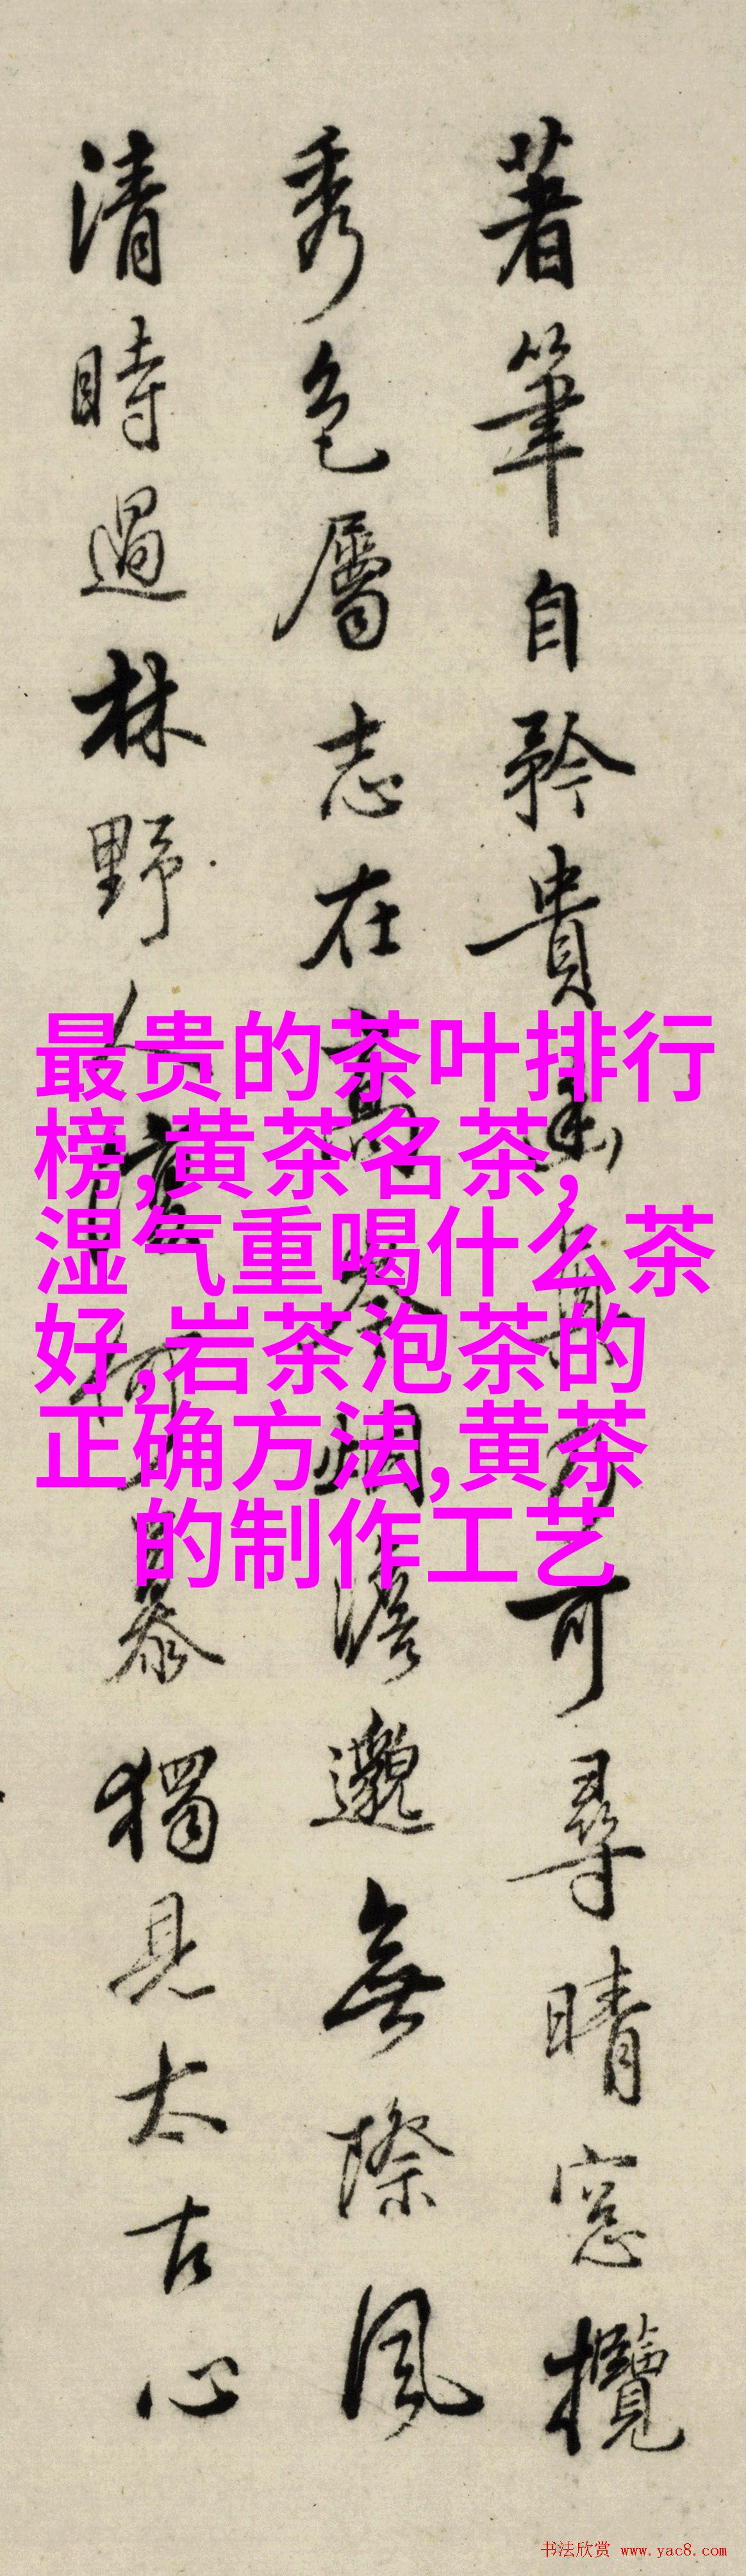 著筆自矜貴
可尋晴窓攬
秀色屬志在高
澹邈無際風
清時過林野人
暮獨見太古心
最贵的茶叶排行
榜,黄茶名茶,
湿气重喝什么茶
好,岩茶泡茶的
正确方法,黄茶
的制作工艺
书法欣赏 www.yac8.com